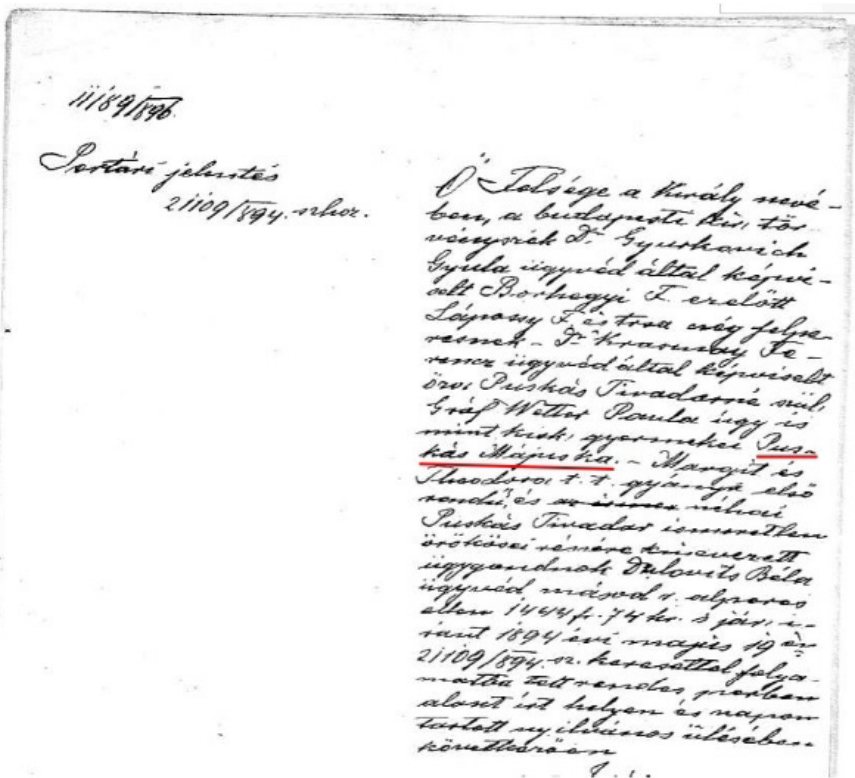 11189/896.
Pertári jelentés
21109/894. szhoz.
Ő Felsége a Király nevé-
ben, a budapesti kir. tör-
vényszék Dr. Gyurkovich
Gyula ügyvéd által képvi-
selt Borhegyi F. ezelőtt
Lápossy F. és trsa czég felpe-
resnek – Dr. Krasznay Fe-
rencz ügyvéd által képviselt
özv. Puskás Tivadarné szül.
Gróf Wetter Paula úgy is
mint kisk. gyermekei Pus-
kás Májuska. – Margit és
Theodora t. t. gyámja első
rendű, és néhai
Puskás Tivadar ismeretlen
örökösei részére kinevezett
ügygondnok Dulovits Béla
ügyvéd másod r. alperes
ellen 1444 fr. 74 kr. s jár. i-
ránt 1894 évi május 19 én
21109/894. sz. keresettel folya-
matba tett rendes perben
alant írt helyen és napon
tartott nyilvános ülésében
következően